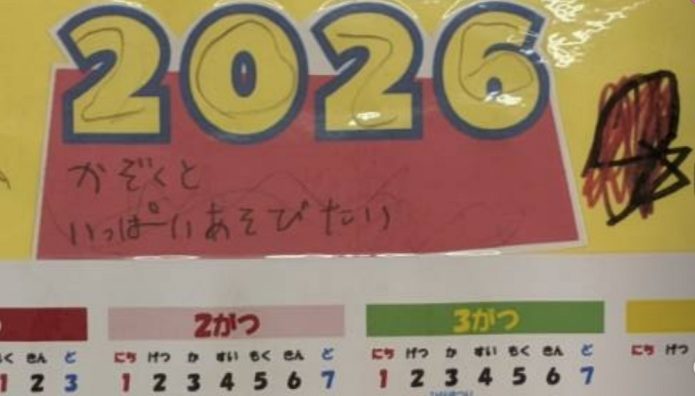 2026
かぞくと
いっぱいあそびたい
2がつ 3がつ
くきんど にちげつかすいもくきんど にちげつかすいもくきんど にちげつ
1 2 3 1 2 3 4 5 6 7 1 2 3 4 5 6 7